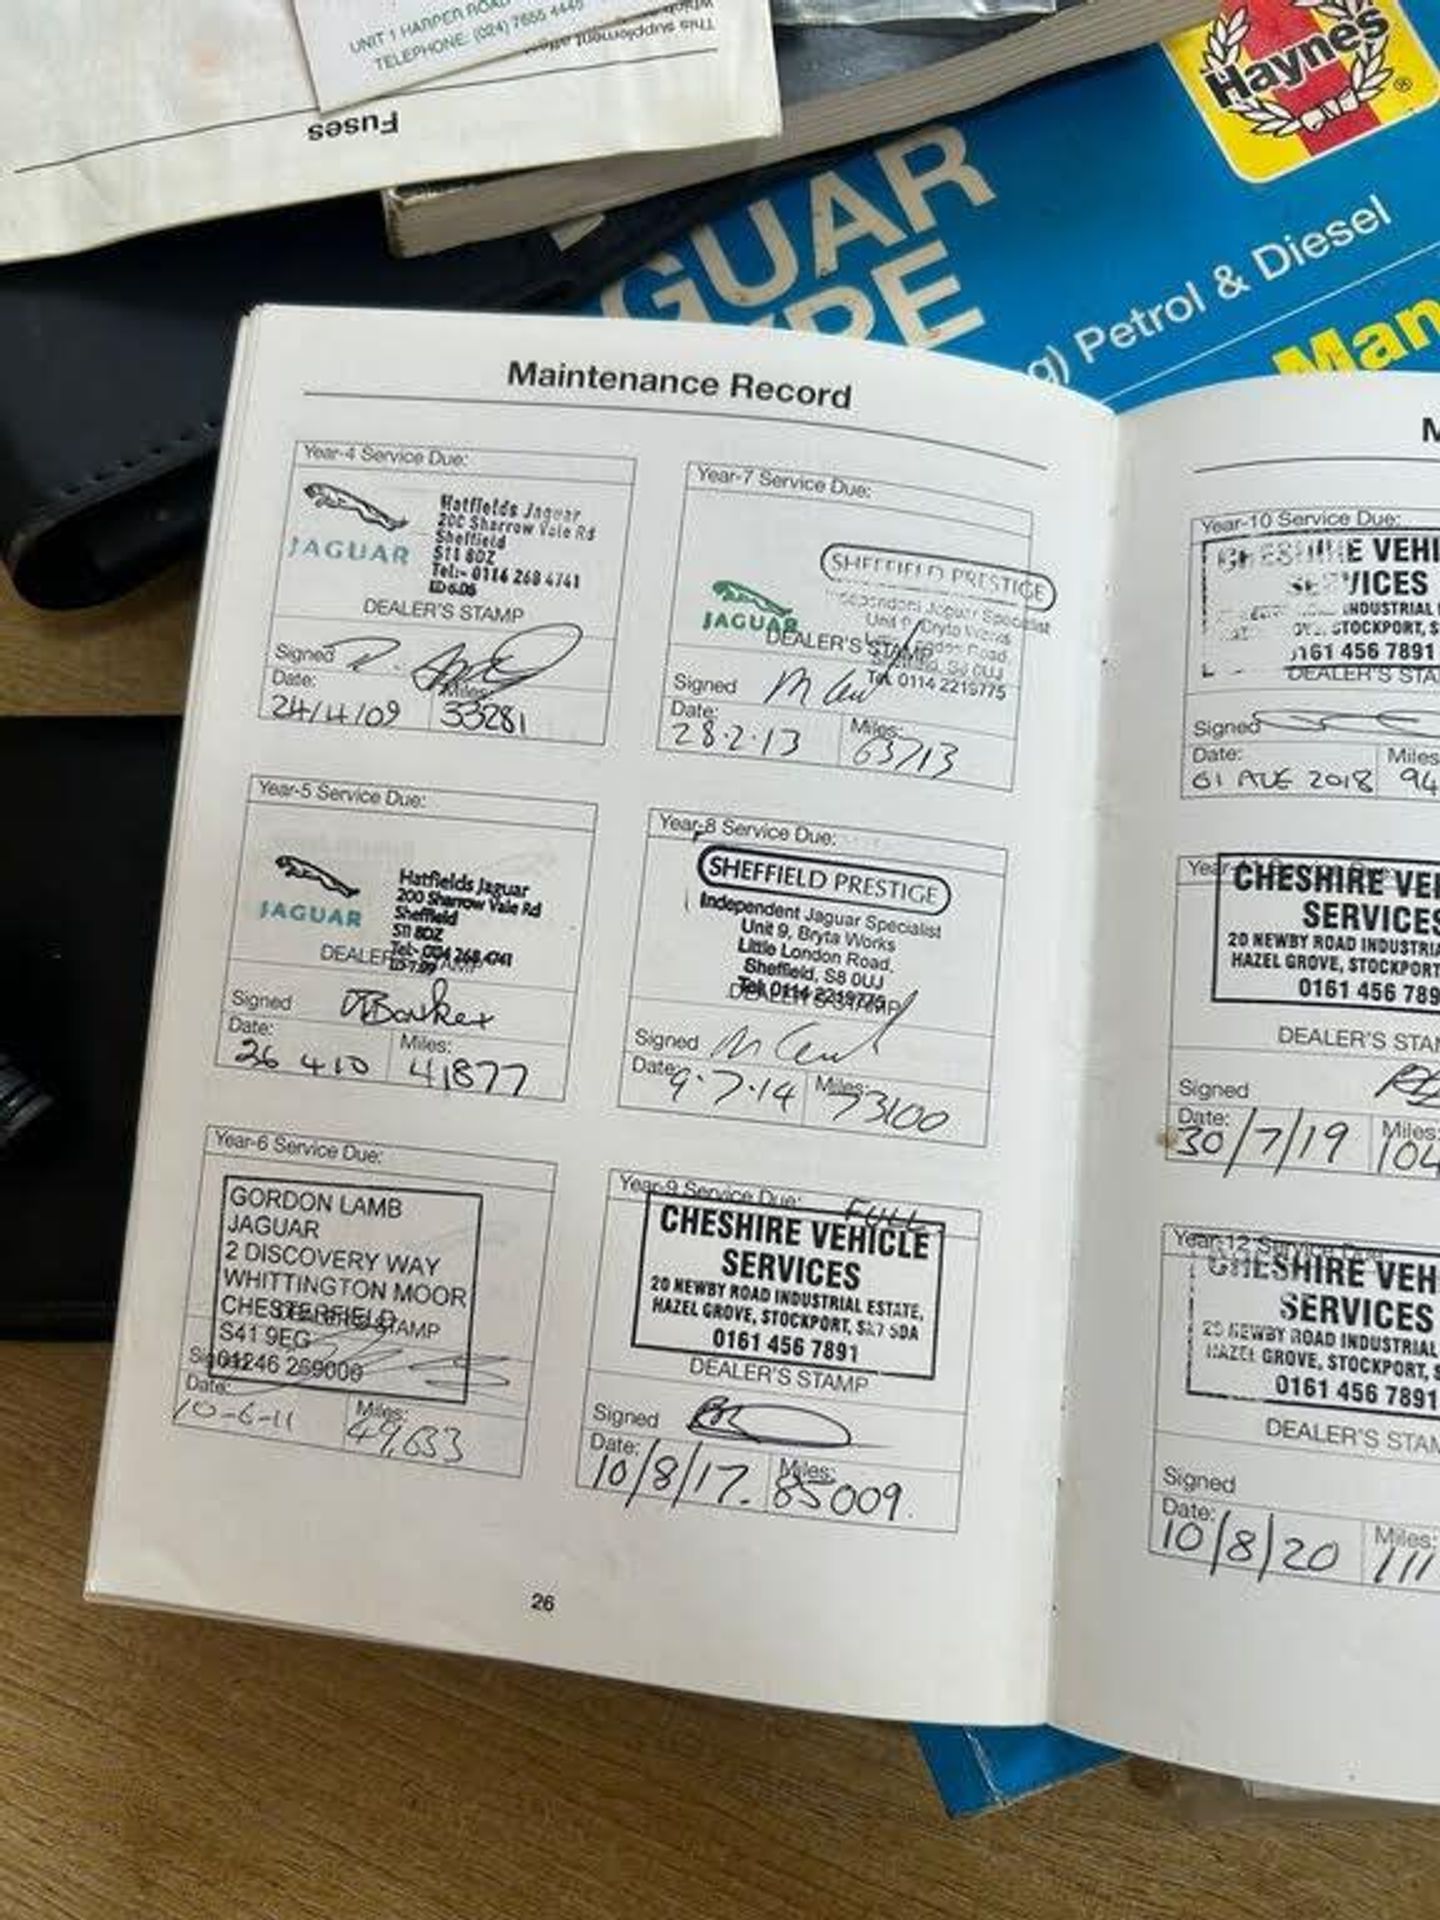 UNIT 1 HARPER ROAD
TELEPHONE: (024) 7655 4445
This supplement
Fuses
Haynes
®
GUAR
Petrol & Diesel
Man
Maintenance Record
Year-4 Service Due:
JAGUAR
Hatfields Jaguar
200 Sharrow Vale Rd
Sheffield
S11 8DZ
Tel:- 0114 268 4741
DEALER'S STAMP
Signed
Date:
24/4/09
Miles:
33281
Year-5 Service Due:
JAGUAR
Hatfields Jaguar
200 Sharrow Vale Rd
Sheffield
S11 8DZ
Tel:- 0114 268 4741
DEALER'S STAMP
Signed
Date:
26 4 10
Miles:
41877
Year-6 Service Due:
GORDON LAMB
JAGUAR
2 DISCOVERY WAY
WHITTINGTON MOOR
CHESTERFIELD
S41 9EG
01246 269000
DEALER'S STAMP
Signed
Date:
10-6-11
Miles:
49,633
Year-7 Service Due:
SHEFFIELD PRESTIGE
Independent Jaguar Specialist
Unit 9, Bryta Works
JAGUAR
DEALER'S STAMP
Sheffield, S8 0UJ
Tel. 0114 2219775
Signed
Date:
28.2.13
Miles:
63713
Year-8 Service Due:
SHEFFIELD PRESTIGE
Independent Jaguar Specialist
Unit 9, Bryta Works
Little London Road,
Sheffield, S8 0UJ
Tel. 0114 2219775
DEALER'S STAMP
Signed
Date:
9.7.14
Miles:
73100
Year-9 Service Due:
FULL
CHESHIRE VEHICLE
SERVICES
20 NEWBY ROAD INDUSTRIAL ESTATE,
HAZEL GROVE, STOCKPORT, SK7 5DA
0161 456 7891
DEALER'S STAMP
Signed
Date:
10/8/17.
Miles:
85009.
26
M
Year-10 Service Due:
CHESHIRE VEHI
SERVICES
INDUSTRIAL
STOCKPORT, S
0161 456 7891
DEALER'S STA
Signed
Date:
01 AUG 2018
Miles
94
Year-11 Service Due:
CHESHIRE VE
SERVICES
20 NEWBY ROAD INDUSTRIA
HAZEL GROVE, STOCKPORT
0161 456 789
DEALER'S STA
Signed
Date:
30/7/19
Miles:
104
Year-12 Service Due:
CHESHIRE VEH
SERVICES
20 NEWBY ROAD INDUSTRIAL
HAZEL GROVE, STOCKPORT, S
0161 456 7891
DEALER'S STAM
Signed
Date:
10/8/20
Miles:
111